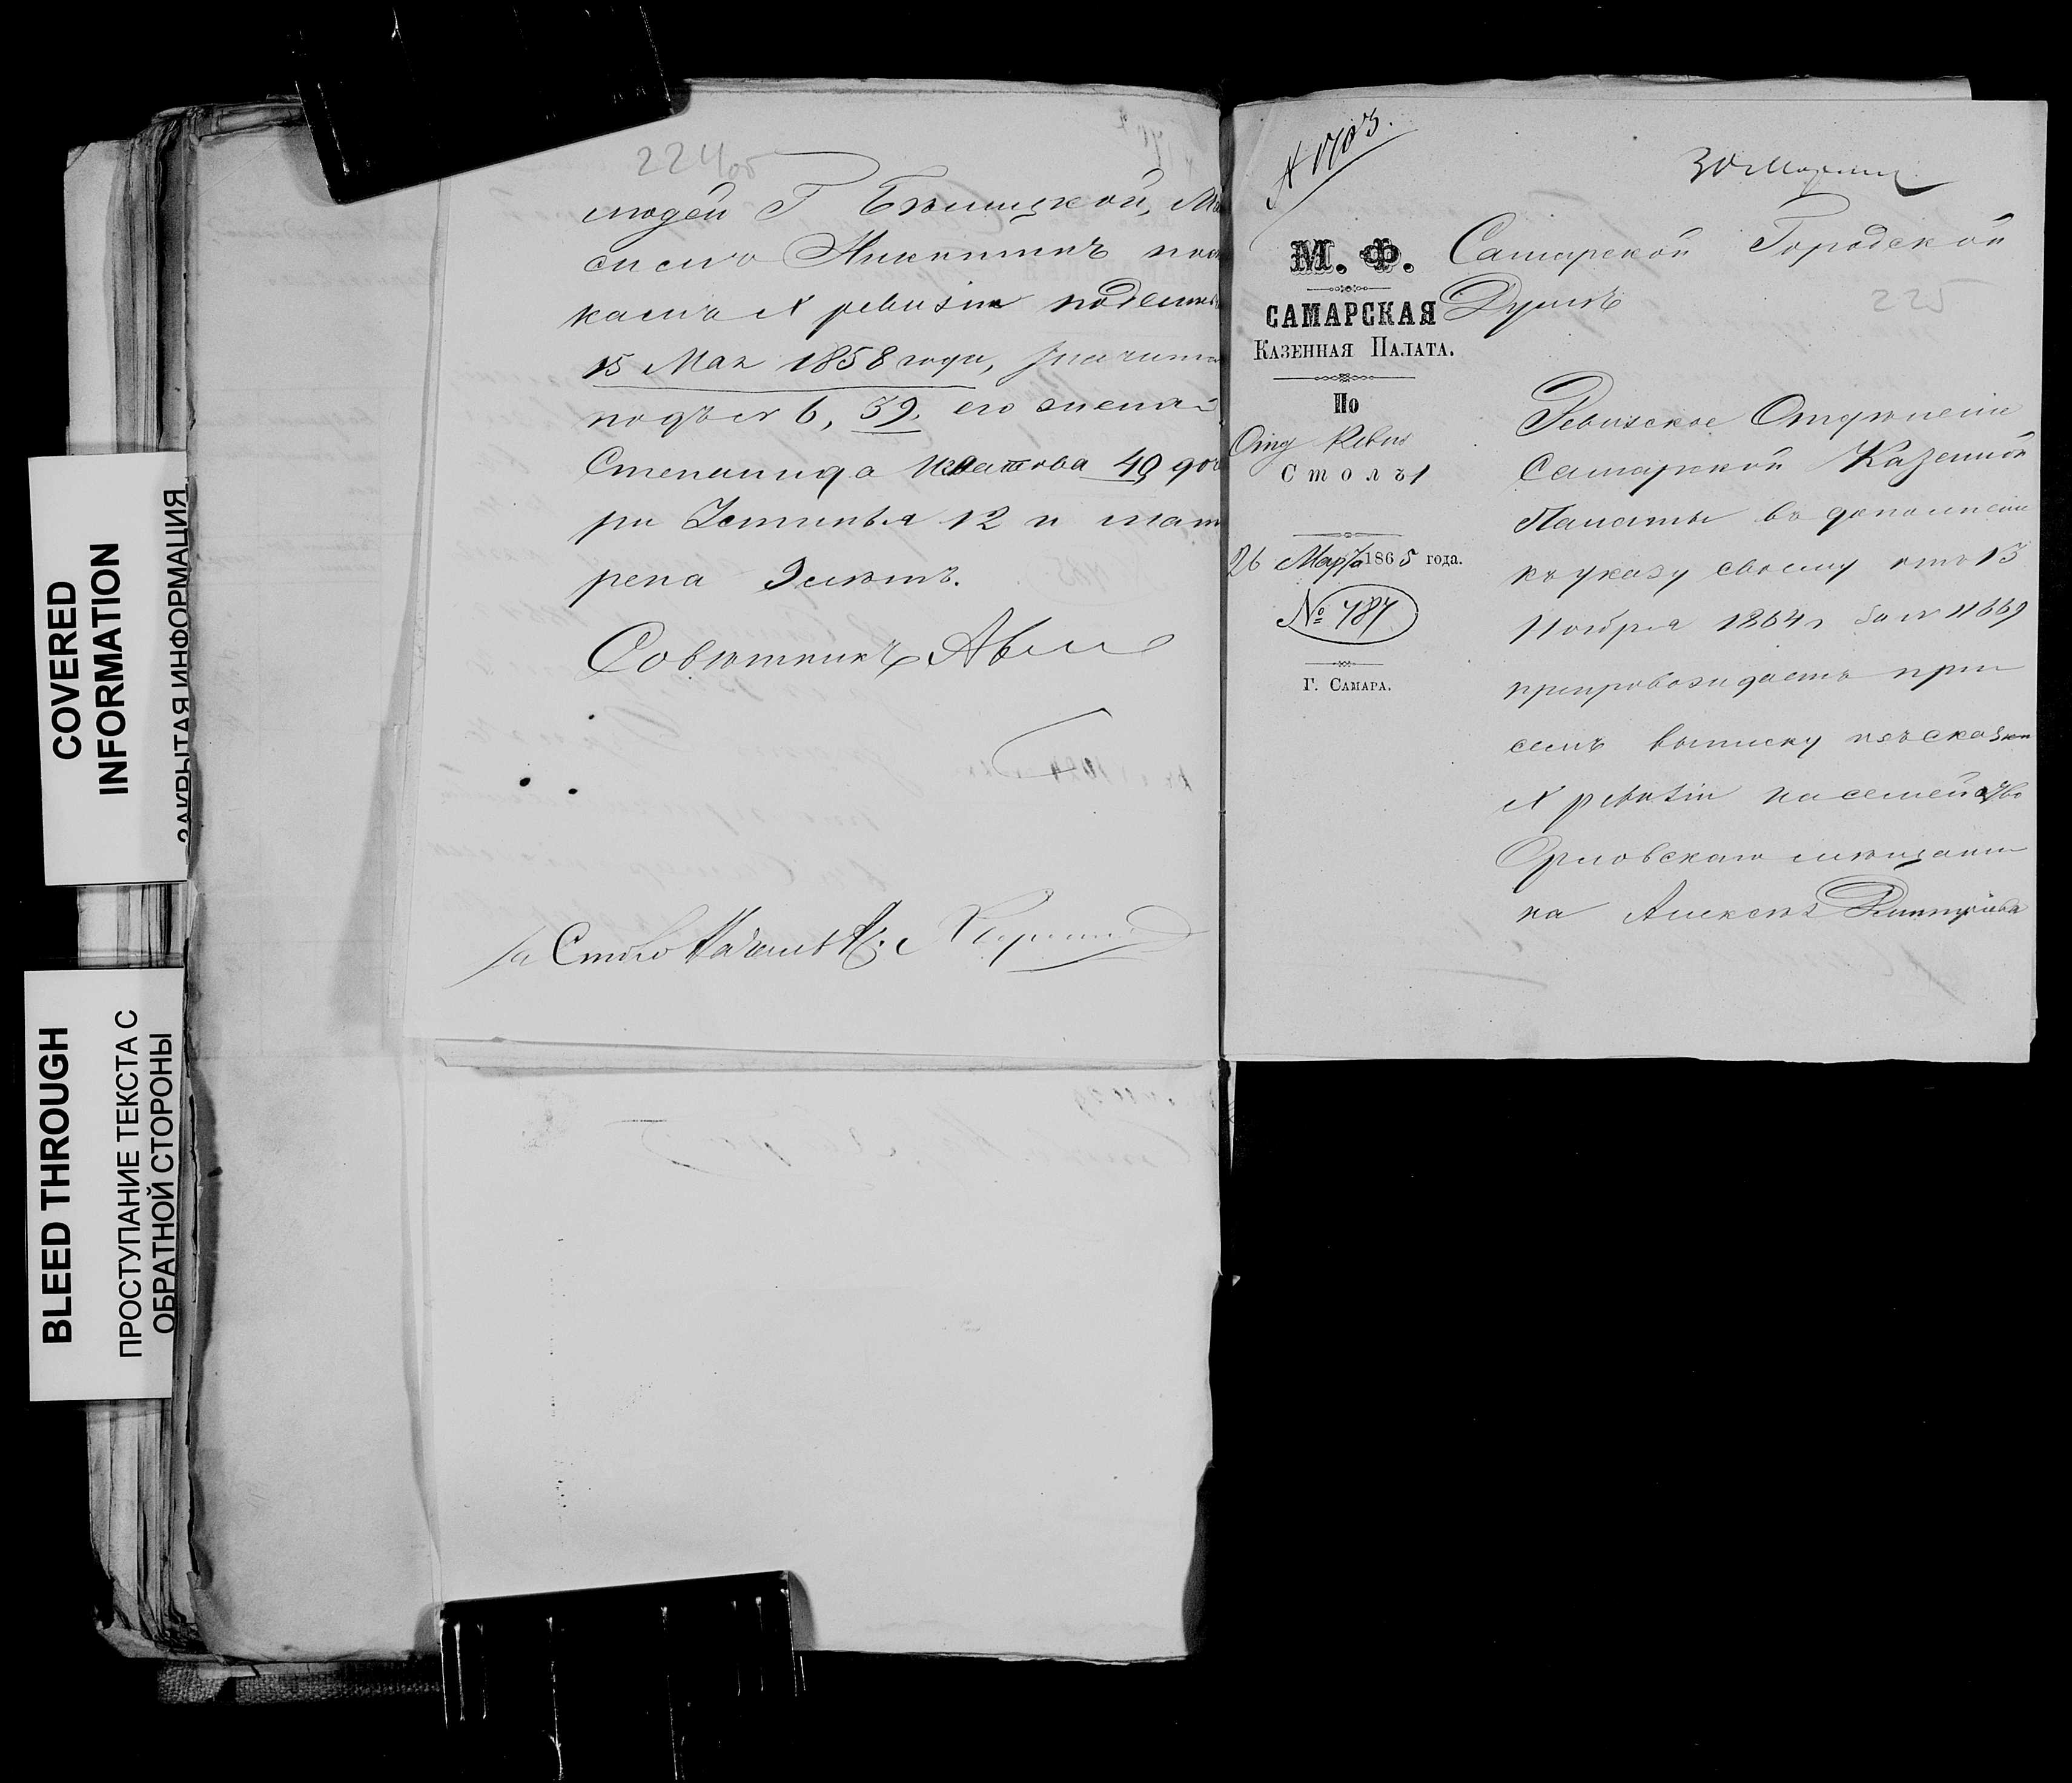 COVERED
INFORMATION
ЗАКРЫТАЯ ИНФОРМАЦИЯ
BLEED THROUGH
ПРОСТУПАНИЕ ТЕКСТА С
ОБРАТНОЙ СТОРОНЫ
224 об
людей Г Бѣлицкой, Ма
симъ Никитинъ по
камъ X ревизіи поданны
15 Мая 1858 года, значит
подъ № 6, 39, его жена
Степанида Игнатова 49 доч
ри Устинья 12 и Мат
рена 9 лѣтъ.
Совѣтникъ
За Столоначальн
№ 1703.
30 Марта
М. Ф.
САМАРСКАЯ
КАЗЕННАЯ ПАЛАТА.
По
Отд Ревиз
Столъ 1
26 Марта 1865 года.
№ 787
Г. САМАРА.
Самарской Городской
Думѣ
225
Ревизское Отдѣленіе
Самарской Казенной
Палаты въ дополненіе
къ указу своему отъ 13
Ноября 1864 г за № 11669
препровождаетъ при
семъ выписку изъ сказки
X ревизіи на семейство
Орловскаго мѣщани
на Алексѣя Дмитріева